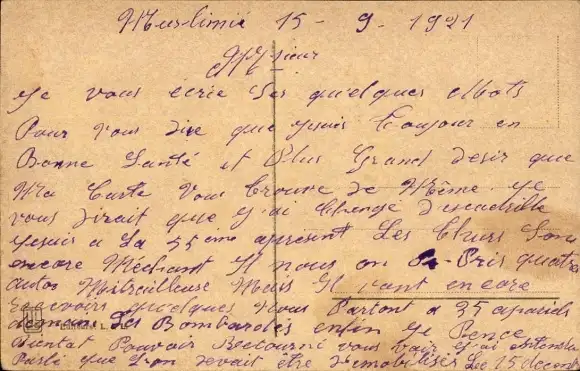 Muslimié 15 - 9 - 1921
Msieur
Je vous écrie Ses quelques Mots
Pour vous dire que Jsuis Toujour en
Bonne Santé et Plus Grand désir que
Ma Carte vous Trouve de Même. Je
vous dirait que J'ai Changé d'escadrille
Jesuis a La 55 ème aprésent Les Turs Son
encore Méchant Il nous on Pris quatre
autos Mitrailleuse Mais Il vont encore
recevoir quelques nous Partont a 25 apareils
demain Les Bombardés enfin Je Pence
Bientat Pouvoir Retourné vous voir J'ai entendu
Parlé que l'on devait être démobilisés Le 15 decem